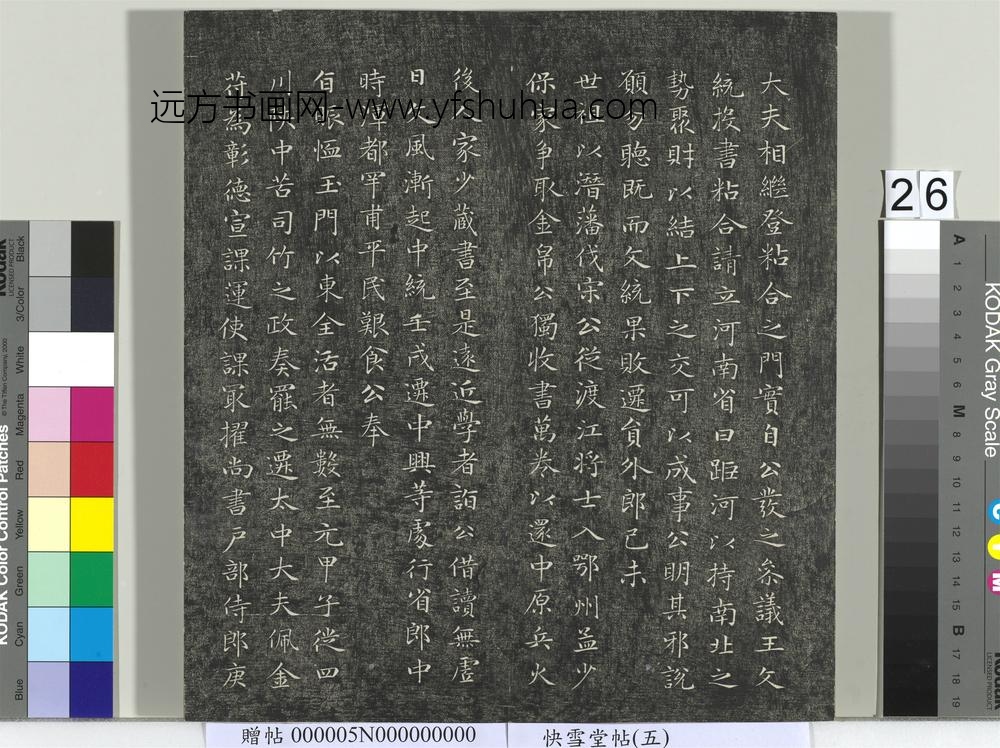 大夫相繼登粘合之門實自公發之叅議王文
統投書粘合請立河南省曰距河以持南北之
勢聚財以結上下之交可以成事公明其邪說
願勿聽既而文統果敗遷貟外郎己未
世祖以潛藩伐宋公從渡江將士入鄂州孟少
保家爭取金帛公獨收書萬卷以還中原兵火
後人家少藏書至是遠近學者詣公借讀無虛
日文風漸起中統壬戌遷中興等處行省郎中
時渾都罕甫平民艱食公奉
旨賑恤玉門以東全活者無數至元甲子從四
川陝中苦司竹之政奏罷之遷太中大夫佩金
符為彰德宣課運使課冣擢尚書戶部侍郎庚
远方书画网-www.yfshuhua.com
26
贈帖 000005N000000000
快雪堂帖(五)
KODAK Color Control Patches
© The Tiffen Company, 2000
Kodak
LICENSED PRODUCT
Blue
Cyan
Green
Yellow
Red
Magenta
White
3/Color
Black
KODAK Gray Scale
A 1 2 3 4 5 6 M 8 9 10 11 12 13 14 15 B 17 18 19
C
Y
M
Kodak
LICENSED PRODUCT